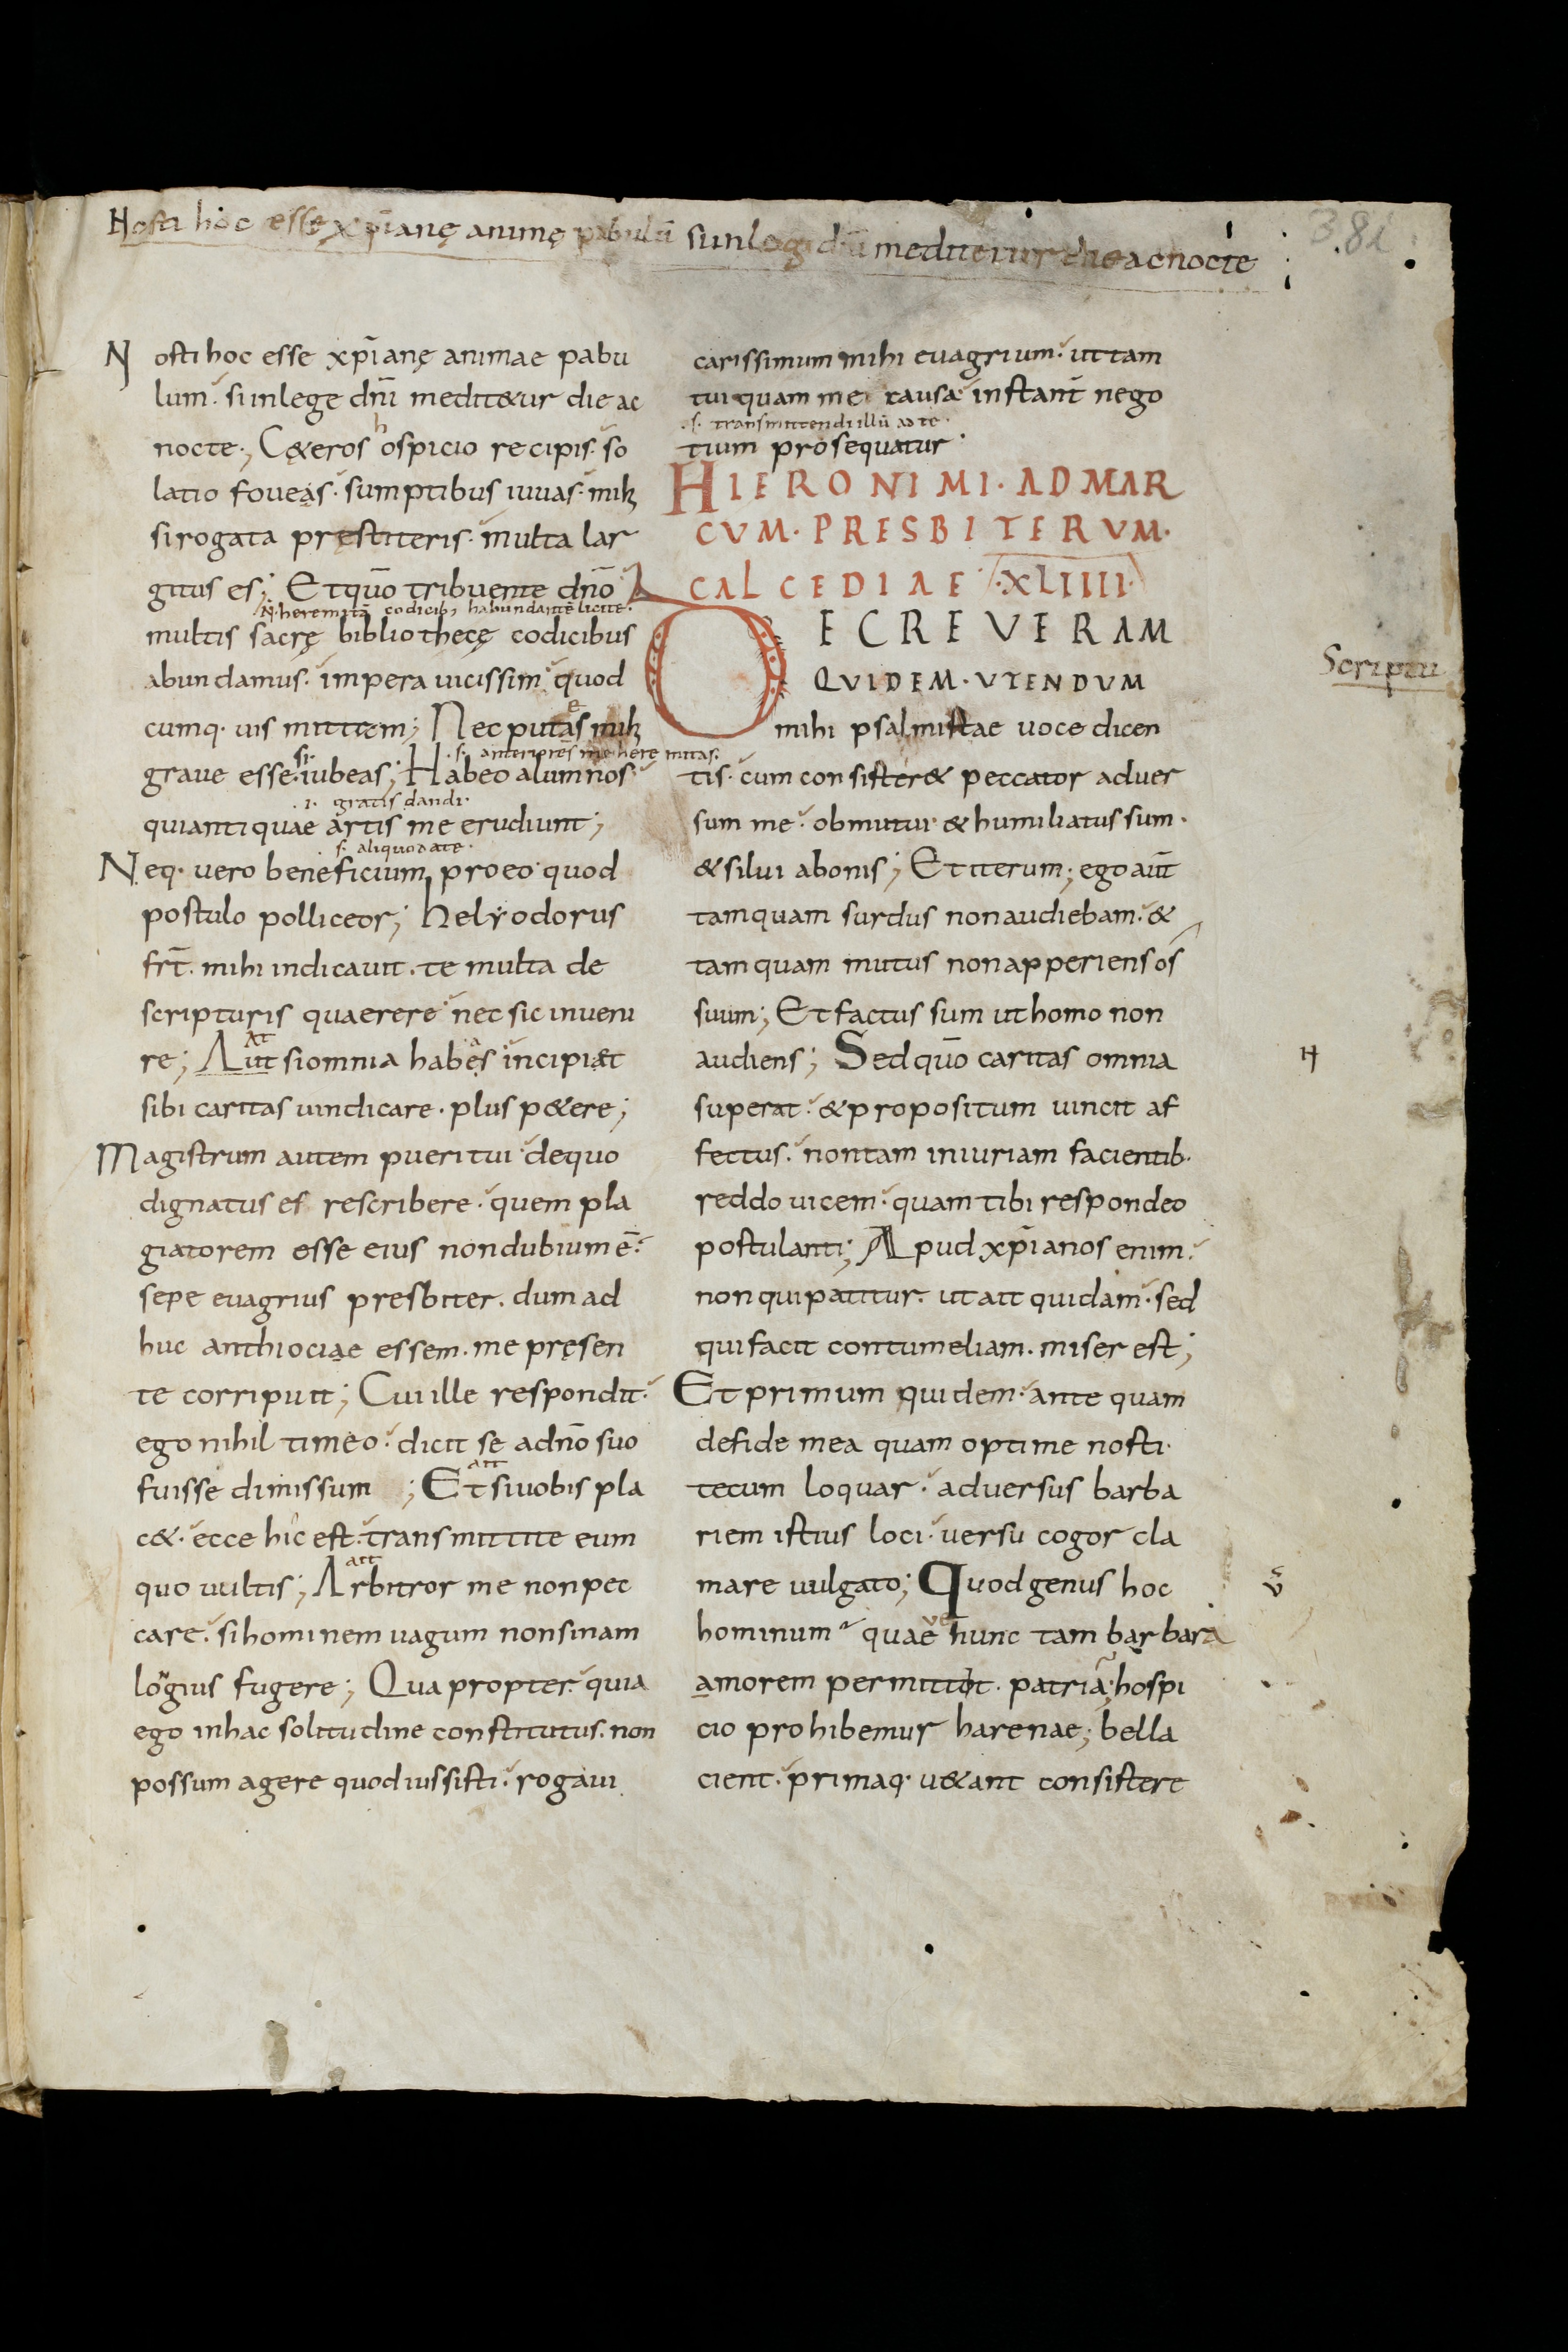 Nosti hoc esse xp̄ianę animę pabulū si in leg dn̄i meditetur die ac nocte
381
Nosti hoc esse xp̄ianę animae pabu
lum. si in lege dn̄i medit&ur die ac
nocte; C&eros hospicio recipis. so
latio foueas. sumptibus iuuas. mih
si rogata pręstiteris. multa lar
gitus es; Et quō tribuente dn̄o
N. heremitā codicib; habundantē licite.
multis sacrę bibliothecę codicibus
abundamus. impera uicissim. quod
cumq. uis mittem; Nec putas mih
e
s. anteripres me heremitas.
graue esse. si iubeas; Habeo alumnos
.i. gratis dandi.
qui antiquae artis me erudiunt;
s. aliquo a te.
Neq. uero beneficium pro eo quod
postulo polliceor; Helyodorus
frt̄. mihi indicauit. te multa de
scripturis quaerere nec sic inueni
At
re; Aut si omnia habes incipiat
sibi caritas uindicare. plus p&ere;
Magistrum autem pueri tui de quo
dignatus es rescribere. quem pla
giatorem esse eius non dubium ē.
sepe euagrius presbiter. dum ad
huc anthiociae essem. me pręsen
te corripuit; Cui ille respondit.
ego nihil timeo. dicit se a dn̄o suo
ait
fuisse dimissum; Et si uobis pla
c&. ecce hic est. transmittite eum
ait
quo uultis; Arbitror me non pec
care. si hominem uagum non sinam
lōgius fugere; Qua propter quia
ego in hac solitudine constitutus. non
possum agere quod iussisti. rogaui
carissimum mihi euagrium. ut tam
tui quam mei causa instant̄ nego
.s. transmittendi illū ad te.
tium prosequatur.
HIERONIMI. AD MAR
CVM. PRESBITERVM.
CALCEDIAE .XLIIII.
DECREVERAM
QVIDEM. VTENDVM
Scriptu
mihi psalmistae uoce dicen
tis. cum consister& peccator aduer
sum me. obmutui & humiliatus sum.
& silui a bonis; Et iterum; ego aūt
tamquam surdus non audiebam. &
tamquam mutus non apperiens os
suum; Et factus sum ut homo non
audiens; Sed quō caritas omnia
superat. & propositum uincit af
fectus. non tam iniuriam facientib.
reddo uicem. quam tibi respondeo
postulanti; Apud xp̄ianos enim.
non qui patitur. ut ait quidam. sed
qui facit contumeliam. miser est;
Et primum quidem. ante quam
de fide mea quam optime nosti.
tecum loquar. aduersus barba
riem istius loci. uersu cogor cla
mare uulgato; Quod genus hoc
hominum quae hunc tam barbara
amorem permittit. patria; hospi
cio prohibemur harenae; bella
cient. primaq. u&ant consistere